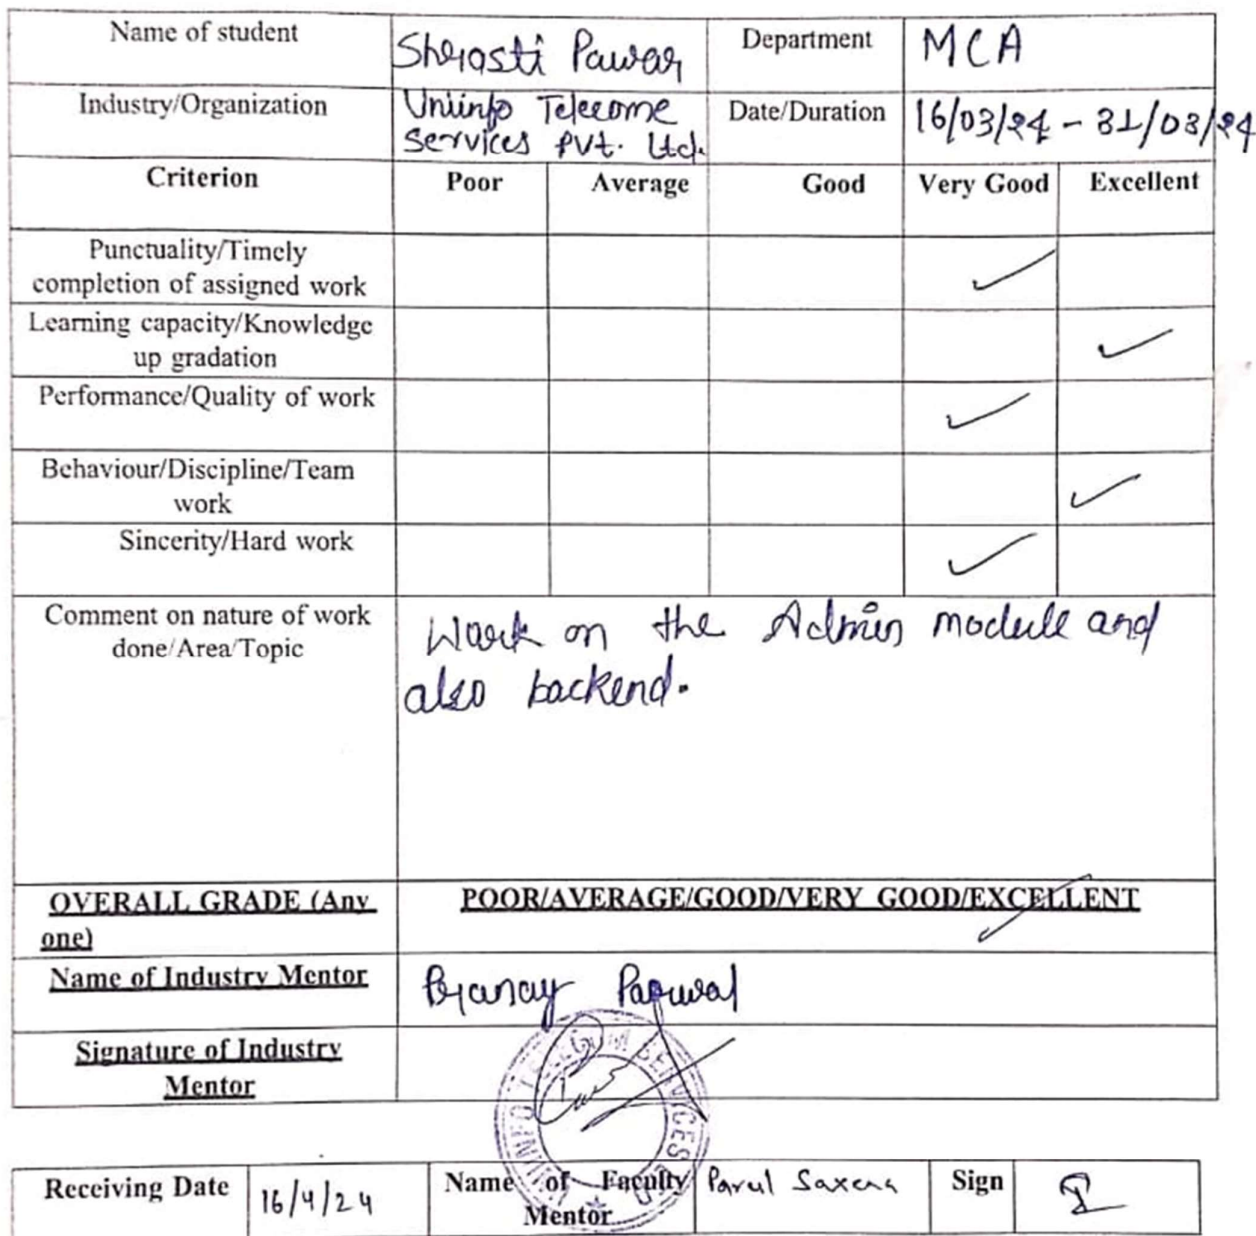 Name of student Shrasti Pawar Department MCA
Industry/Organization Uniinfo Telecome Services Pvt. Ltd. Date/Duration 16/03/24 - 31/03/24
Criterion Poor Average Good Very Good Excellent
Punctuality/Timely
completion of assigned work ✓
Learning capacity/Knowledge
up gradation ✓
Performance/Quality of work ✓
Behaviour/Discipline/Team
work ✓
Sincerity/Hard work ✓
Comment on nature of work
done/Area/Topic
Work on the Admin module and
also backend.
OVERALL GRADE (Any
one)
POOR/AVERAGE/GOOD/VERY GOOD/EXCELLENT
Name of Industry Mentor Pranay Porwal
Signature of Industry
Mentor
UNINFO TELECOM SERVICES
Receiving Date 16/4/24 Name of Faculty
Mentor Parul Saxena Sign